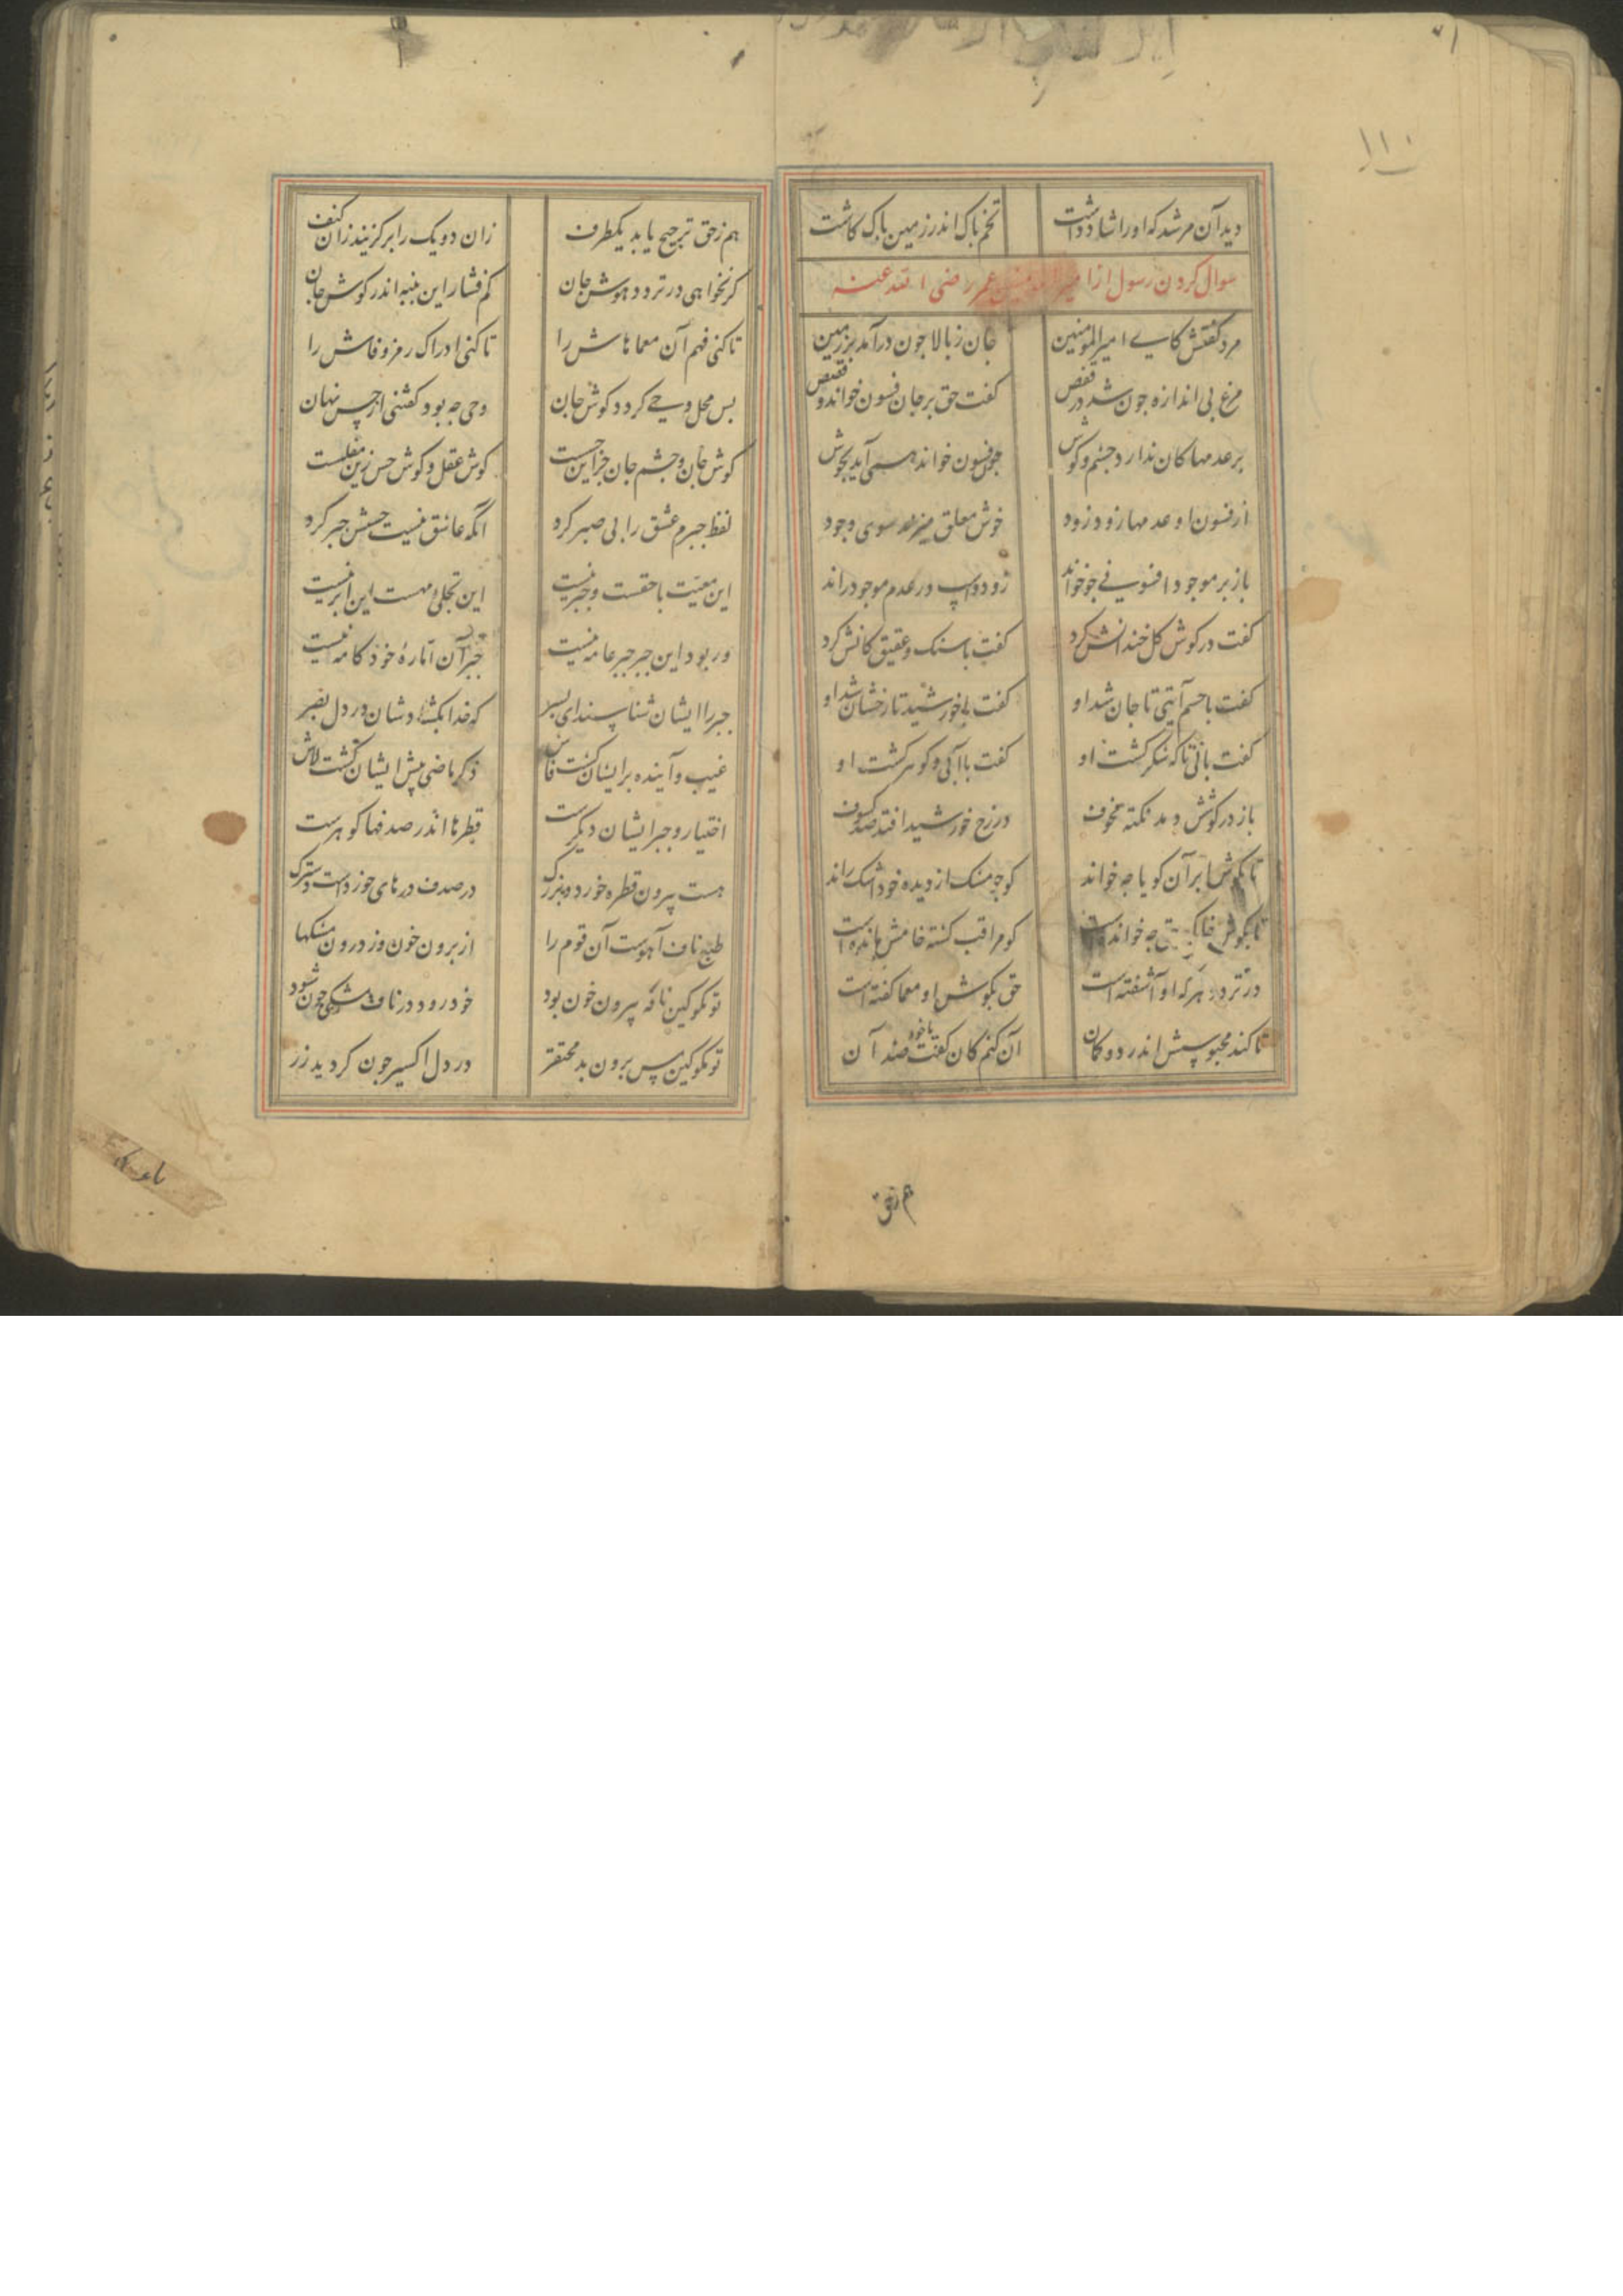 ۱۱۰
دید آن مرشد که او ارشاد داشت	تخم پاک اندر زمین پاک کاشت
سوال کردن رسول از امیر المومنین عمر رضی الله عنه
مرد کفتش کای امیر المومنین	جان ز بالا جون درآمد بر زمین
مرغ بی اندازه جون شد در قفص	کفت حق بر جان فسون خواند و قصص
بر عدمها کان ندارد جشم و کوش	جون فسون خواند همی آید بجوش
از فسون او عدمها زود زود	خوش معلق میزند سوی وجود
باز بر موجود افسونی جو خواند	زود دو اسپ در عدم موجود راند
کفت در کوش کل خندانش کرد	کفت با سنک و عقیق کانش کرد
کفت با جسم آیتی تا جان شد او	کفت با خورشید تا رخشان شد او
کفت با نی تا که شکر کشت او	کفت با آبی و کوهر کشت او
باز در کوشش دمد نکته مخوف	در رخ خورشید افتد صد کسوف
تا بکوش ابر آن کویا جه خواند	کو جو مشک از دیده خود اشک راند
تا بکوش خاک حق جه خوانده است	کو مراقب کشته خامش مانده است
در تردد هر که او آشفته است	حق بکوش او معما کفته است
تا کند محبوسش اندر دو کمان	آن کنم کان کفت یا خود ضد آن
هم زحق
هم ز حق ترجیح یابد یکطرف	زان دو یک را برکزیند زان کنف
کر نخواهی در تردد هوش جان	کم فشار این پنبه اندر کوش جان
تا کنی فهم آن معماهاش را	تا کنی ادراک رمز و فاش را
بس محل وحی کردد کوش جان	وحی جه بود کفتنی از حس نهان
کوش جان و جشم جان جز این حسست	کوش عقل و کوش حس زین مفلست
لفظ جبرم عشق را بی صبر کرد	انکه عاشق نیست حبس جبر کرد
این معیت با حقست و جبر نیست	این تجلی مهست این ابر نیست
ور بود این جبر جبر عامه نیست	جبر آن اماره خود کامه نیست
جبر را ایشان شناسند ای بسر	که خدا بکشادشان در دل بصر
غیب و آینده بر ایشان کشت فاش	ذکر ماضی پیش ایشان کشت لاش
اختیار و جبر ایشان دیکرست	قطره ها اندر صدفها کوهرست
هست بیرون قطره خورد و بزرک	در صدف درهای خوردست و سترک
طبع ناف آهوست آن قوم را	از برون خون وز درون مشکها
تو مکو کین نافه بیرون خون بود	خود رود در ناف مشکی جون شود
تو مکو کین مس برون بد محتقر	در دل اکسیر جون کردید زر